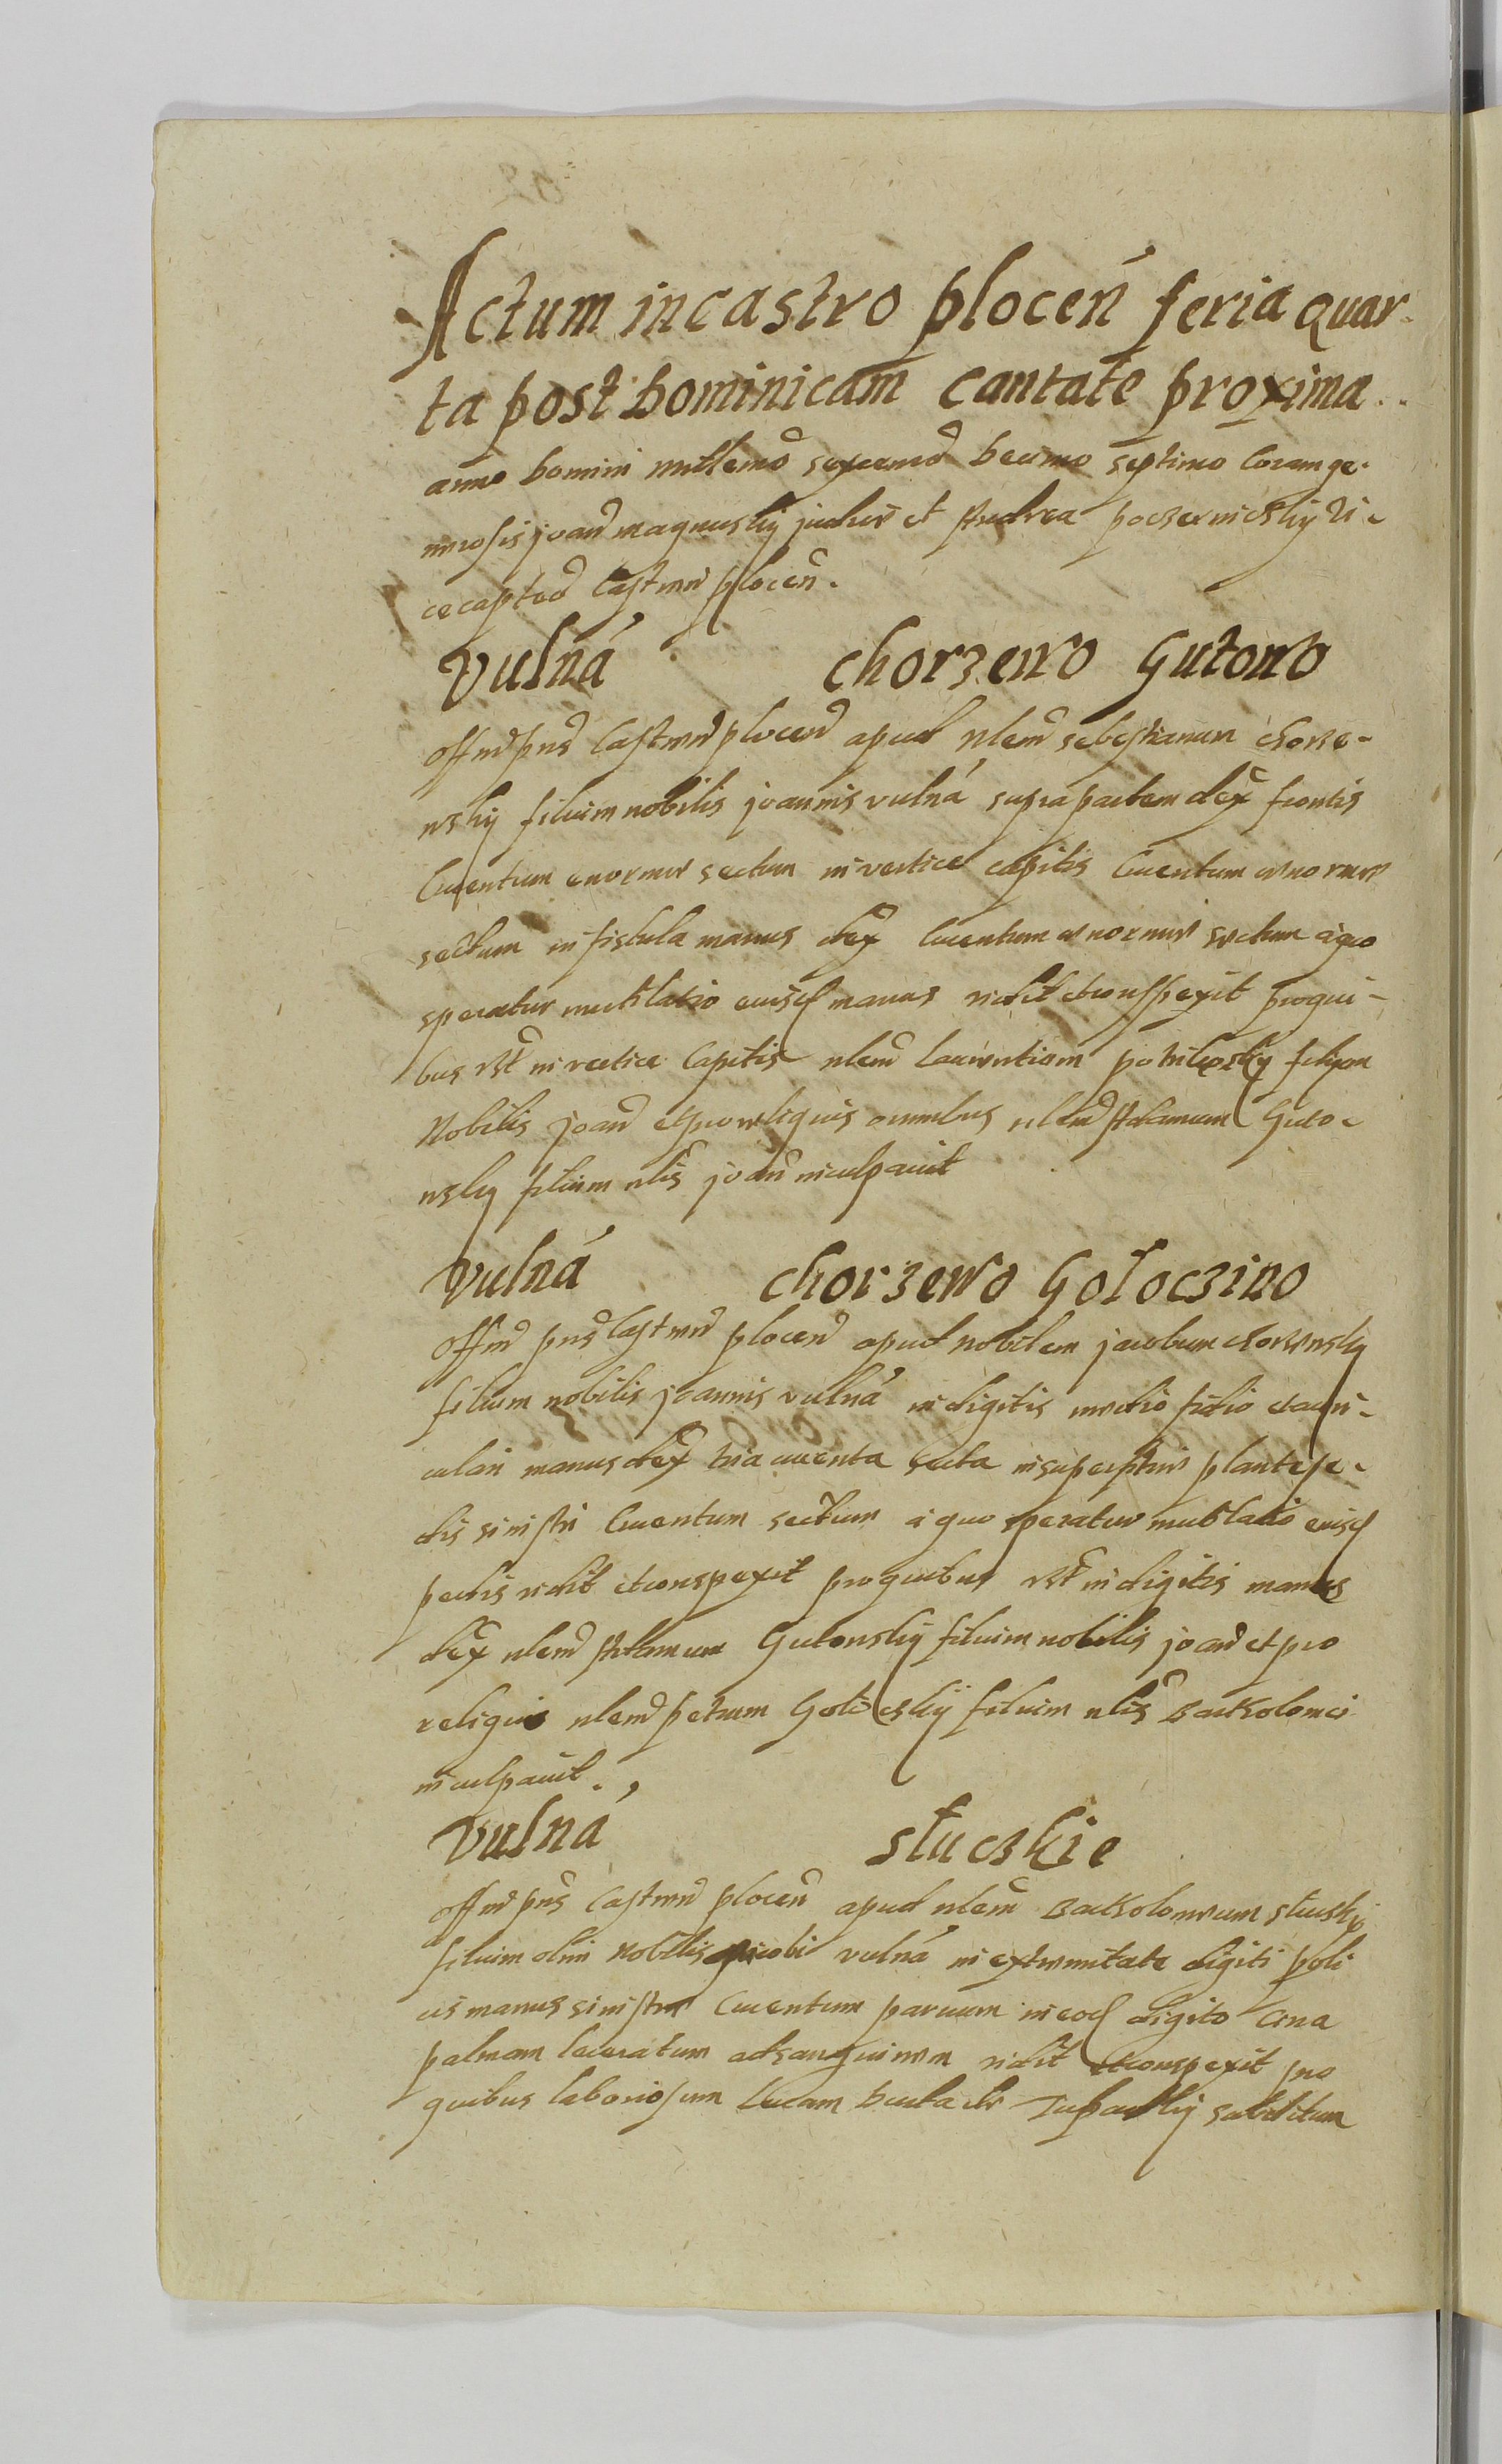 Actum in castro plocen̄ feria quar-
ta post Dominicam Cantate proxima
anno Domini millemo sexcenmo decimo septimo Coram ge-
nerosis joan magnusky judice et Andrea poczerniesky vi-
cecapteo Castren plocen.
Vulna Chorzewo Gutowo
offm pns Castren plocen apud nlem sebestianum chorze-
wsky filium nobilis joannis vulna supra partem dex frontis
Cruentum enormer sectum in vertice capitis Cruentum enormer
sectum in fistula manus dex Cruentum enormer sectum a quo
speratur mutilatio eiusd manus vidit et conspexit pro qui-
bus vt in vertice Capitis nlem Laurentium filium
Nobilis joan et pro reliquis omnibus nlem Adamum Guto-
wsky filium nlis joan inculpauit
Vulna Chorzewo Gołoczino
Offm pns Castren plocen apud nobilem jacobum chorzewsky
filium nobilis joannis vulna in digitis medio et auri-
culari manus dex tria cruenta secta in plante pe-
dis sinistri Cruentum sectum a quo speratur mutilatio eiusd
pedis vidit et conspexit pro quibus vt in digitis manus
dex nlem Adamum Gutowsky filium nobilis joan et pro
reliquis nlem petrum filium nlis Bartholomei
inculpauit.
Vulna słuczkie
offm pns Castren plocen apud nlem Bartholomeum słucsky
filium olim Nobilis jacobi vulna in extremitate digiti poli
cis manus sinistre Cruentum paruum in eod digito Circa
palmam laceratum ad sanguinem vidit et conspexit pro
quibus laboriosum Lucam subditum